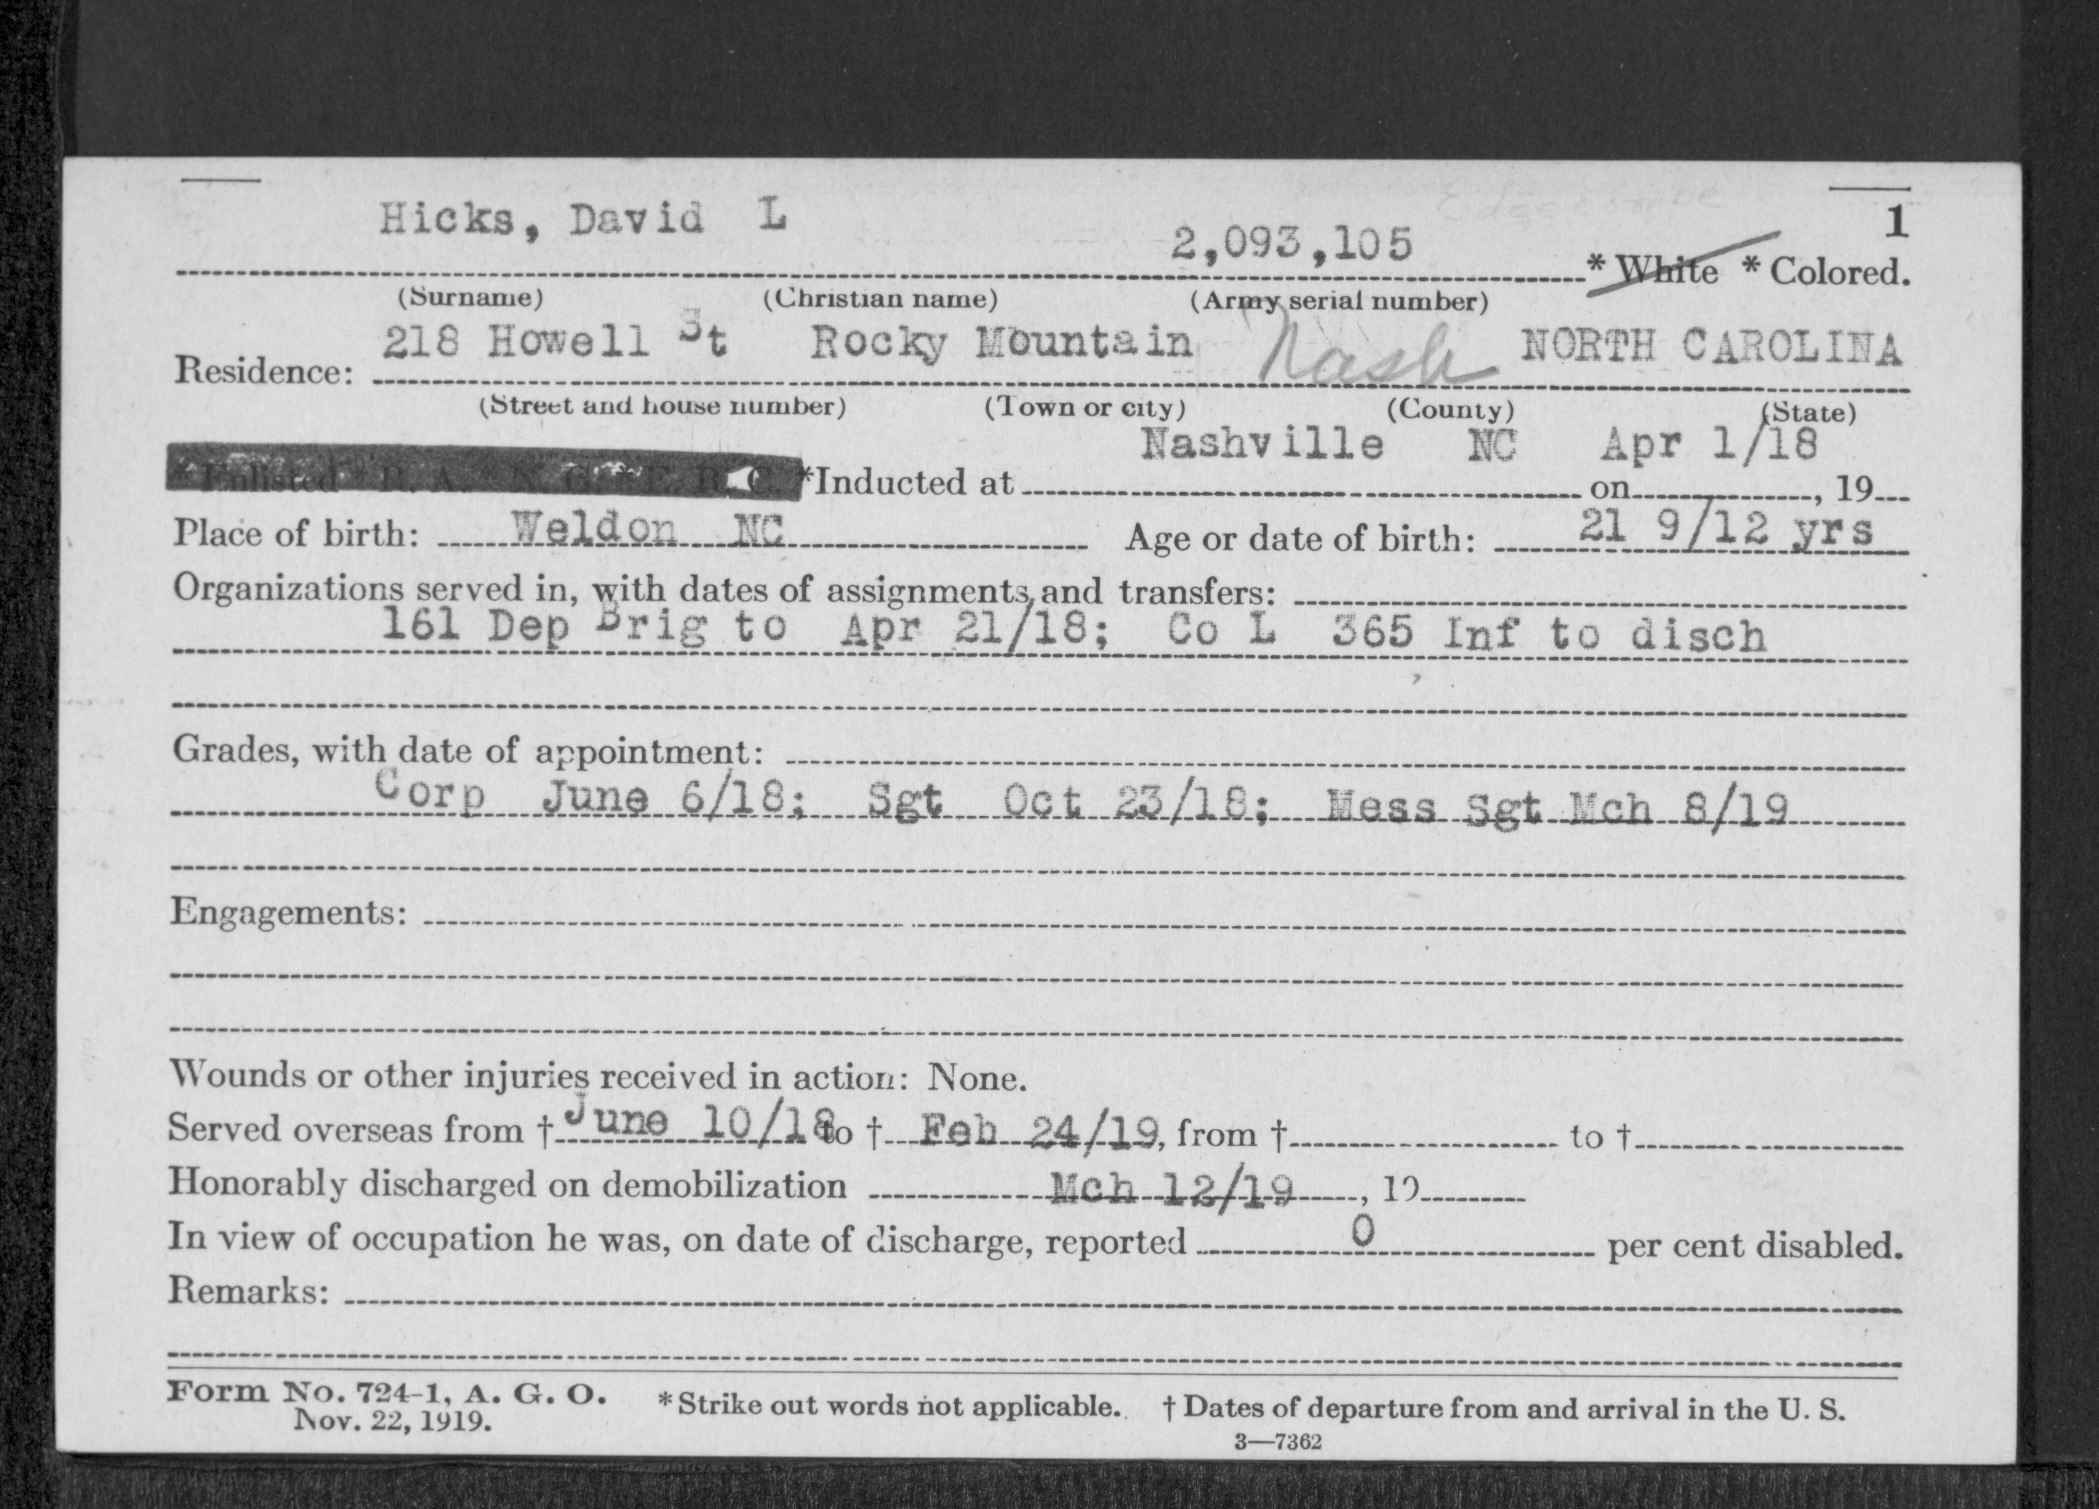 Edgecombe
1
Hicks, David L 2,093,105 * White * Colored.
(Surname) (Christian name) (Army serial number)
Residence: 218 Howell St Rocky Mountain Nash NORTH CAROLINA
(Street and house number) (Town or city) (County) (State)
* Enlisted * R. A. * N. G. * E. R. C. *Inducted at Nashville NC on Apr 1/18, 19
Place of birth: Weldon NC Age or date of birth: 21 9/12 yrs
Organizations served in, with dates of assignments and transfers:
161 Dep Brig to Apr 21/18; Co L 365 Inf to disch
Grades, with date of appointment:
Corp June 6/18; Sgt Oct 23/18; Mess Sgt Mch 8/19
Engagements:
Wounds or other injuries received in action: None.
Served overseas from † June 10/18 to † Feb 24/19, from † to †
Honorably discharged on demobilization Mch 12/19, 19
In view of occupation he was, on date of discharge, reported 0 per cent disabled.
Remarks:
Form No. 724-1, A. G. O. * Strike out words not applicable. † Dates of departure from and arrival in the U. S.
Nov. 22, 1919.
3—7362